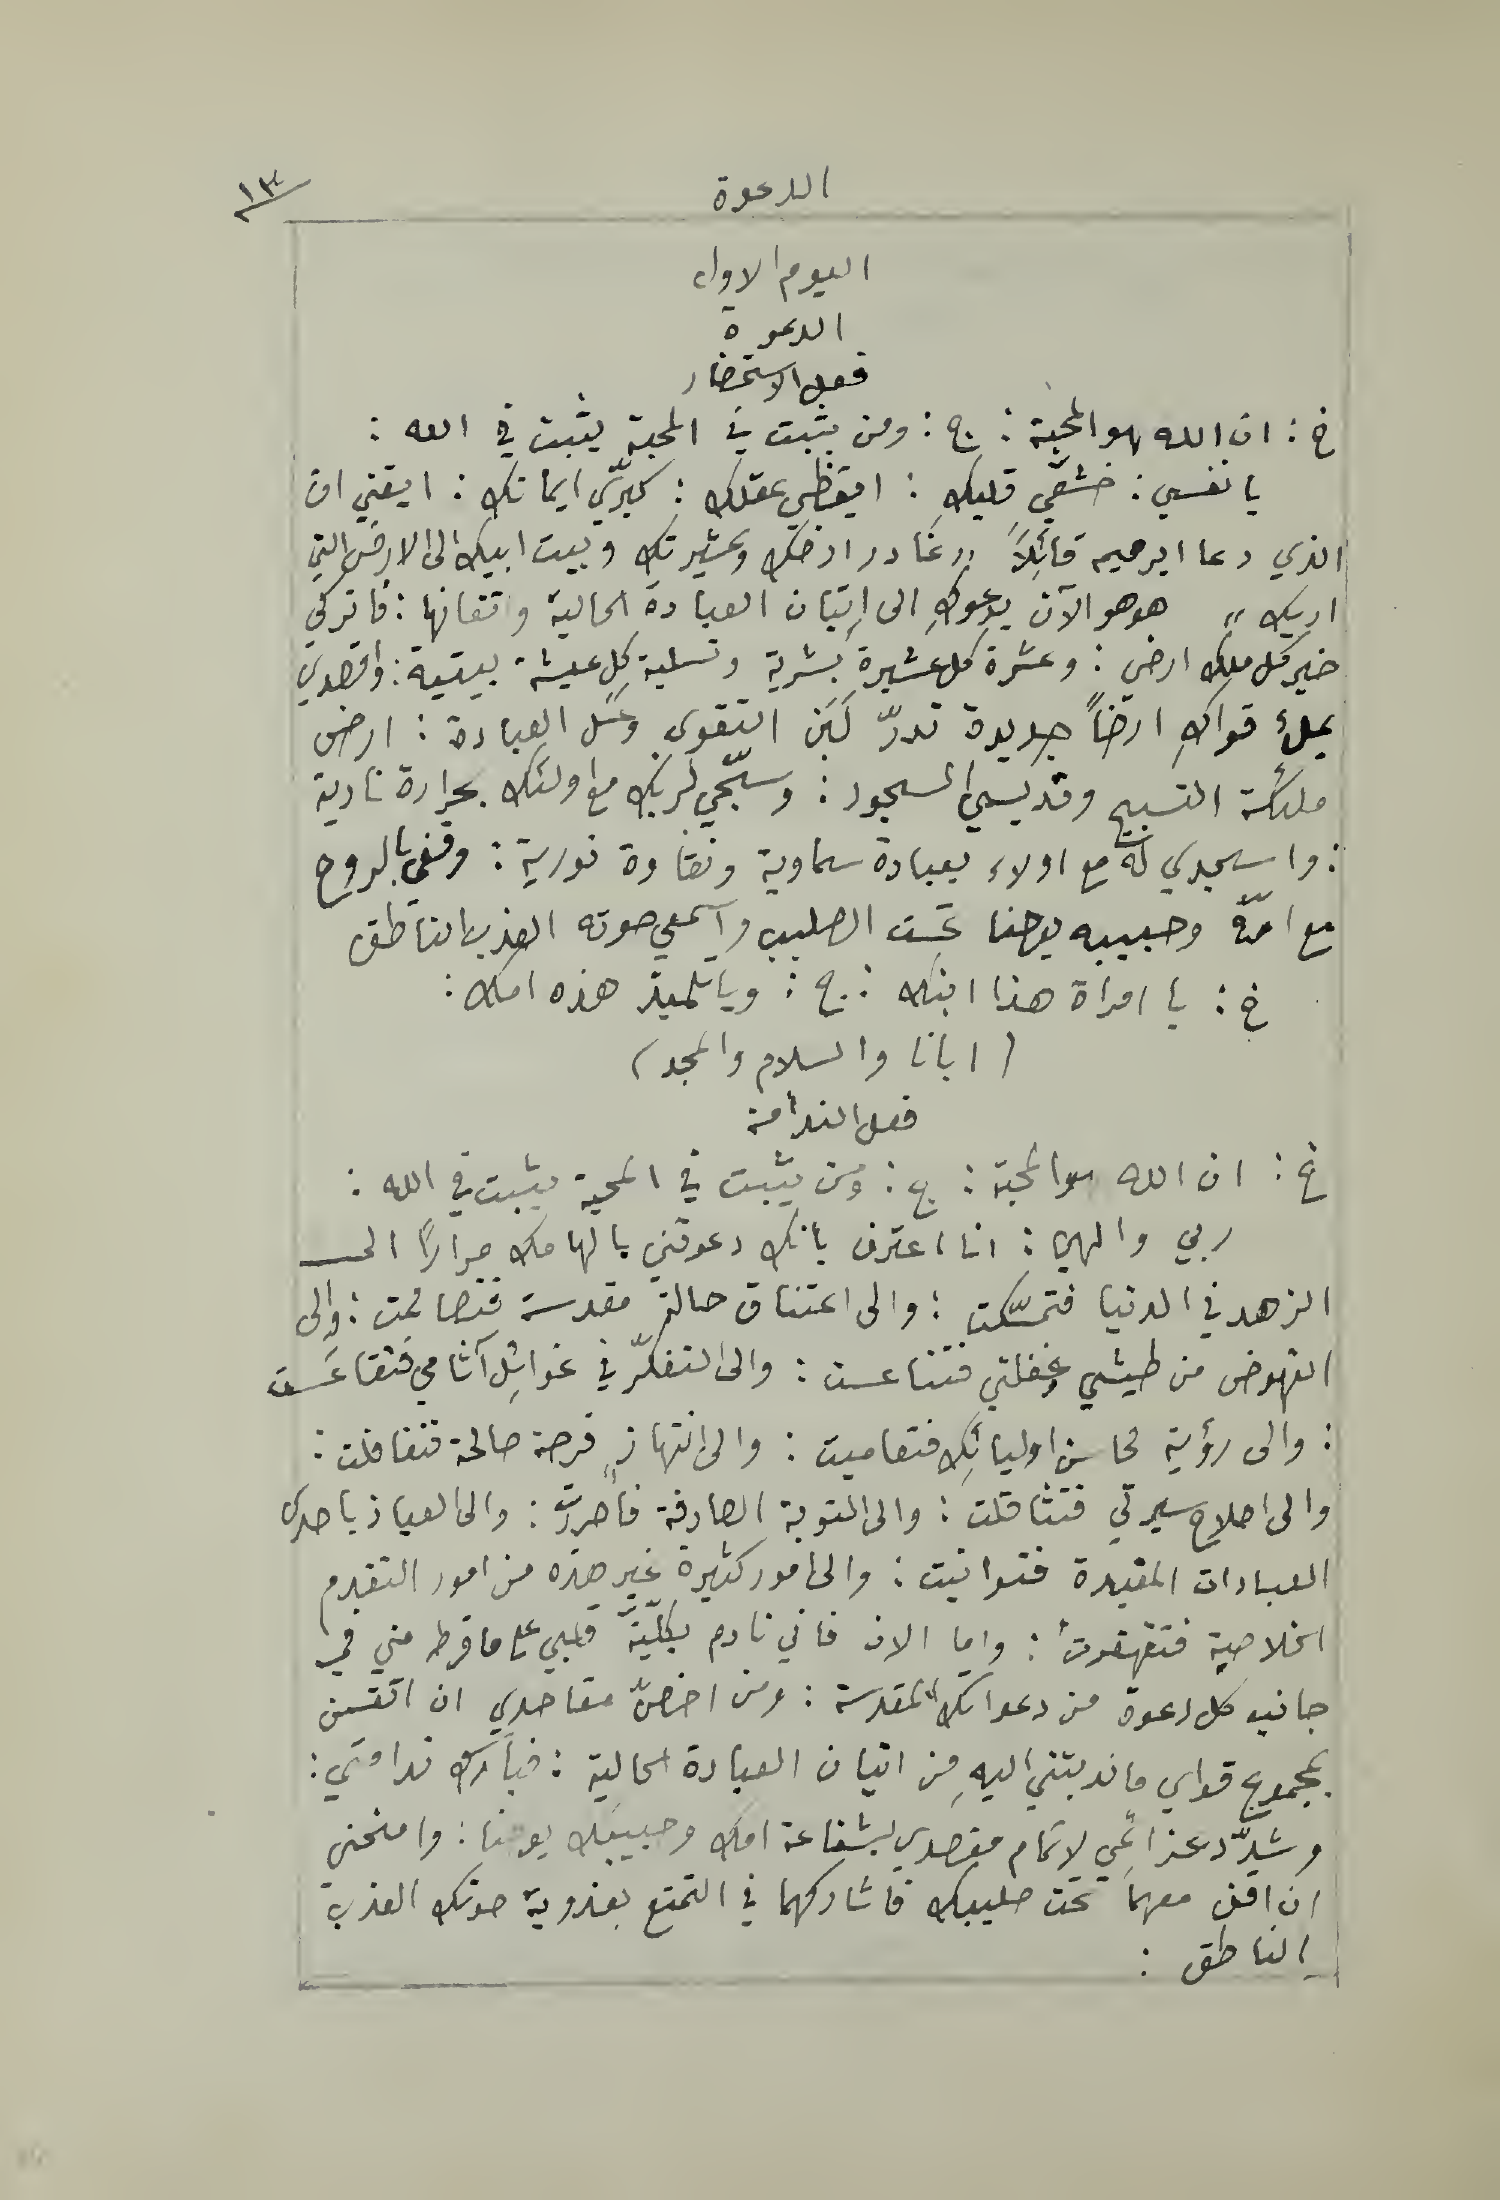 الدعوة
١٣
اليوم الاول
الدعوة
فعل الاستحضار
خ : ان الله هو المحبة : ج : ومن يثبت في المحبة يثبت في الله :
يا نفسي : خشّعي قلبكِ : ايقظي عقلك : كبّري ايمانك : ايقني ان
الذي دعا ابرهيم قائِلاً „ غادر ارضك وعشيرتك وبيت ابيك الى الارض التي
اريك „ هو هو الآن يدعوكِ الى اِتيان العبادة الحالية واتقانها : فاتركي
خير كل ملك ارضي : وعشرة كل عشيرة بشرية وتسلية كل عيشة بيتية : واقصدي
بملءِ قواكِ ارضاً جديدة تدرّ لَبَن التقوى وعَسَل العبادة : ارض
ملئكة التسبيح وقديسي السجود : وسبّحي لربك مع اولئك بحرارة نارية
: واسجدي لهُ مع اولاء بعبادة سماوية ونقاوة نورية : وقفي بالروح
مع امّهِ وحبيبه يوحنا تحت الصليب واسمعي صوته العذب الناطق
خ : يا امراة هذا ابنك : ج : ويا تلميذ هذه امك :
( ابانا والسلام والمجد )
فعل الندامة
خ : ان الله هو المحبة : ج : ومن يثبت في المحبة يثبت في الله :
ربي والهي : انا اعترف بانك دعوتني بالهامك مراراً الى
الزهد في الدنيا فتمسّكت : والى اعتناق حالة مقدسة فتصاممت : والى
النهوض من طيشي وغفلتي فتناعست : والى التفكّر في غوائِل آثامي فتقاعَست
: والى رؤية محاسن اوليائِك فتعاميت : والى انتهاز فرصة صالحة فتغافلت :
والى اصلاح سيرتي فتثاقلت : والى التوبة الصادقة فاصررت : والى العياذ باحدى
العبادات المفيدة فتوانيت : والى امور كثيرة غير هذه من امور التقدم
الخلاصية فتقهقرت : واما الان فاني نادم بكلّيّة قلبي على ما فرط مني في
جانب كل دعوة من دعواتك المقدسة : ومن اخصّ مقاصدي ان اتقن
بمجموع قواي ما ندبتني اليهِ من اتيان العبادة الحالية : فبارك ندامتي :
وشدّد عزائمي لاتمام مقصدي بشفاعة امك وحبيبك يوحنا : وامنحني
ان اقف معهما تحت صليبك فاشاركهما في التمتع بعذوبة صوتك العذب
الناطق :